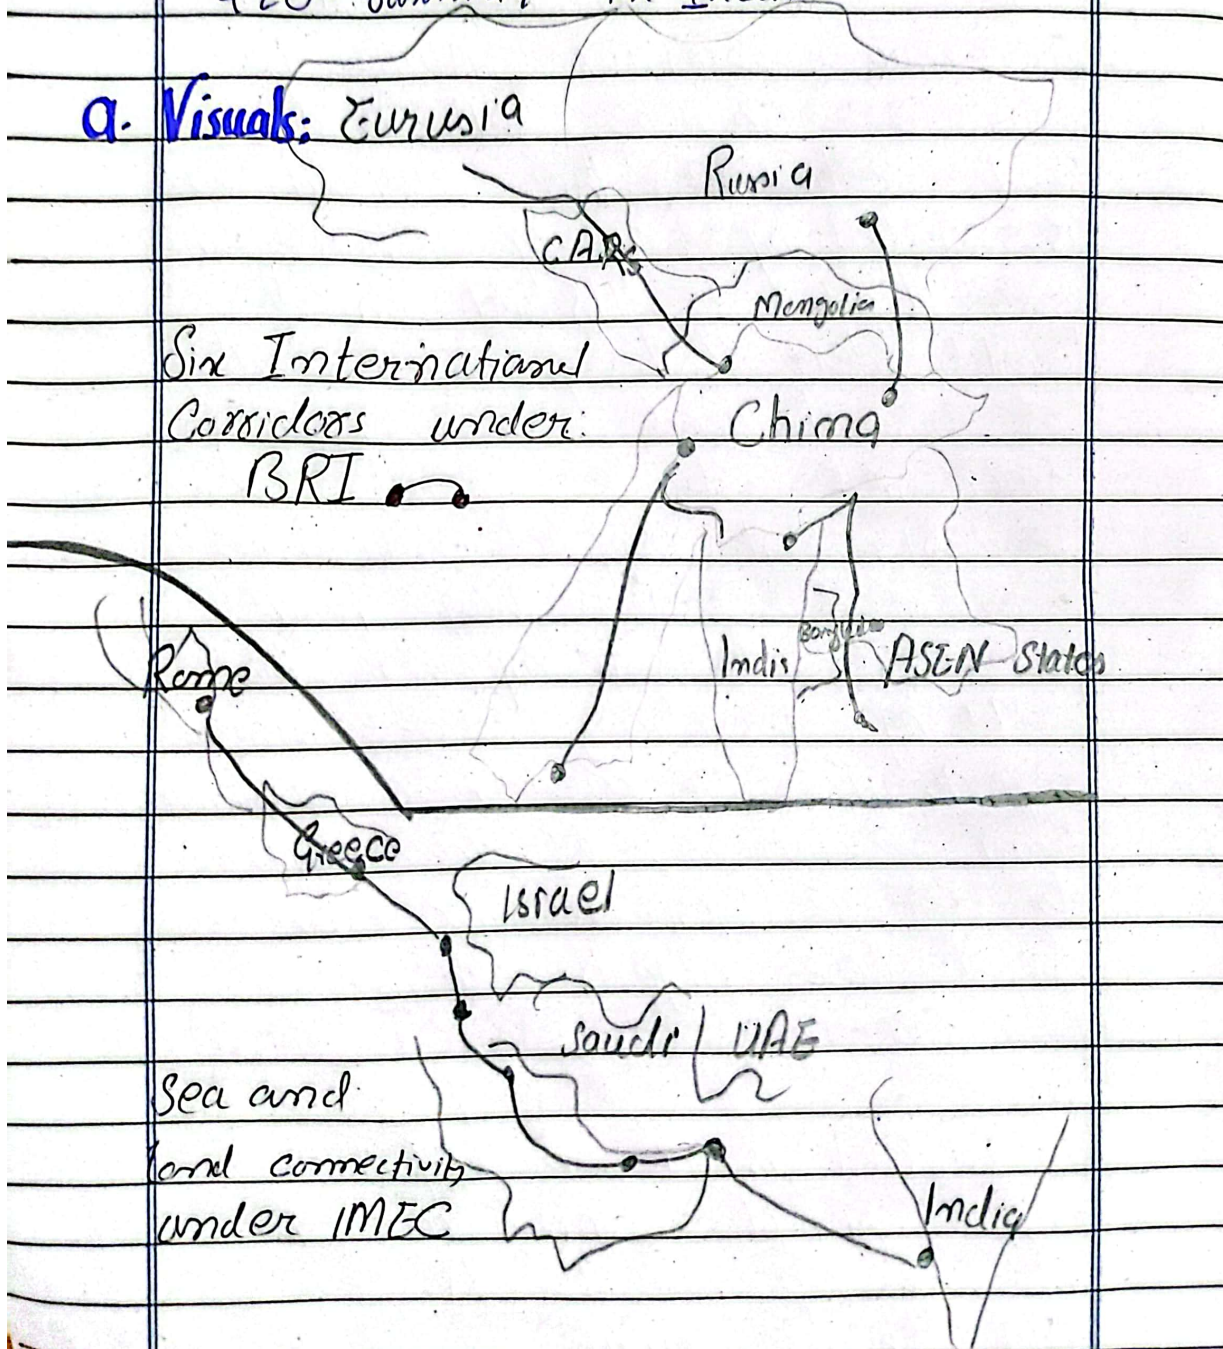 a. Visuals: Eurusia
Russia
CARs
Mongolia
Six International
Corridors under:
China
BRI
India
ASEN States
Rome
Greece
Israel
Saudi
UAE
Sea and
land connectivity
under IMEC
India